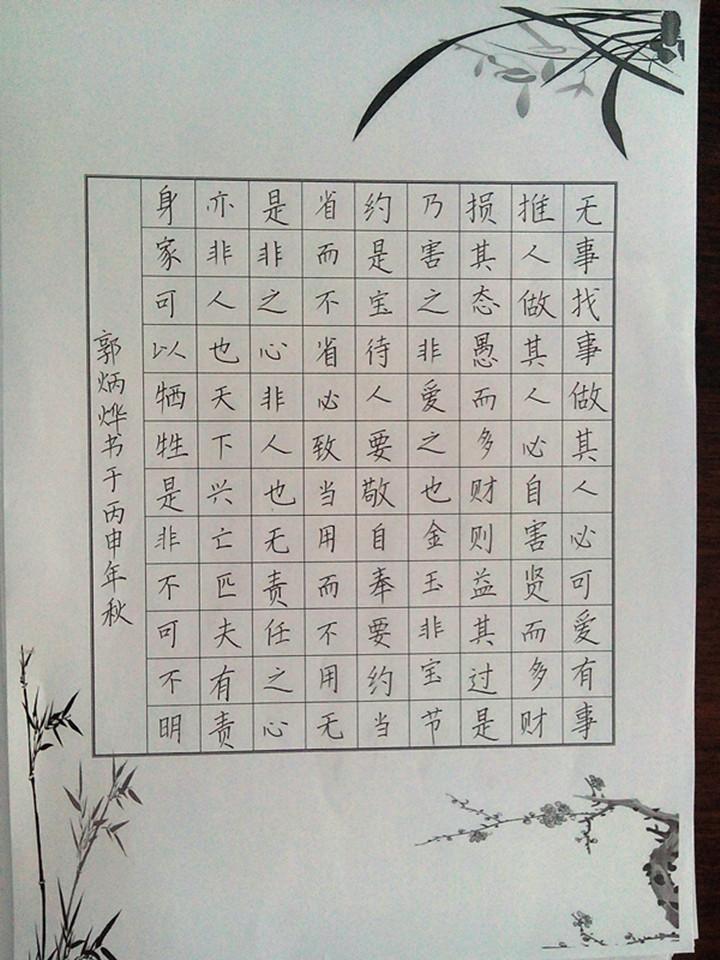 无事找事做其人必可爱有事
推人做其人必自害贤而多财
损其态愚而多财则益其过是
乃害之非爱之也金玉非宝节
约是宝待人要敬自奉要约当
省而不省必致当用而不用无
是非之心非人也无责任之心
亦非人也天下兴亡匹夫有责
身家可以牺牲是非不可不明
郭炳烨书于丙申年秋